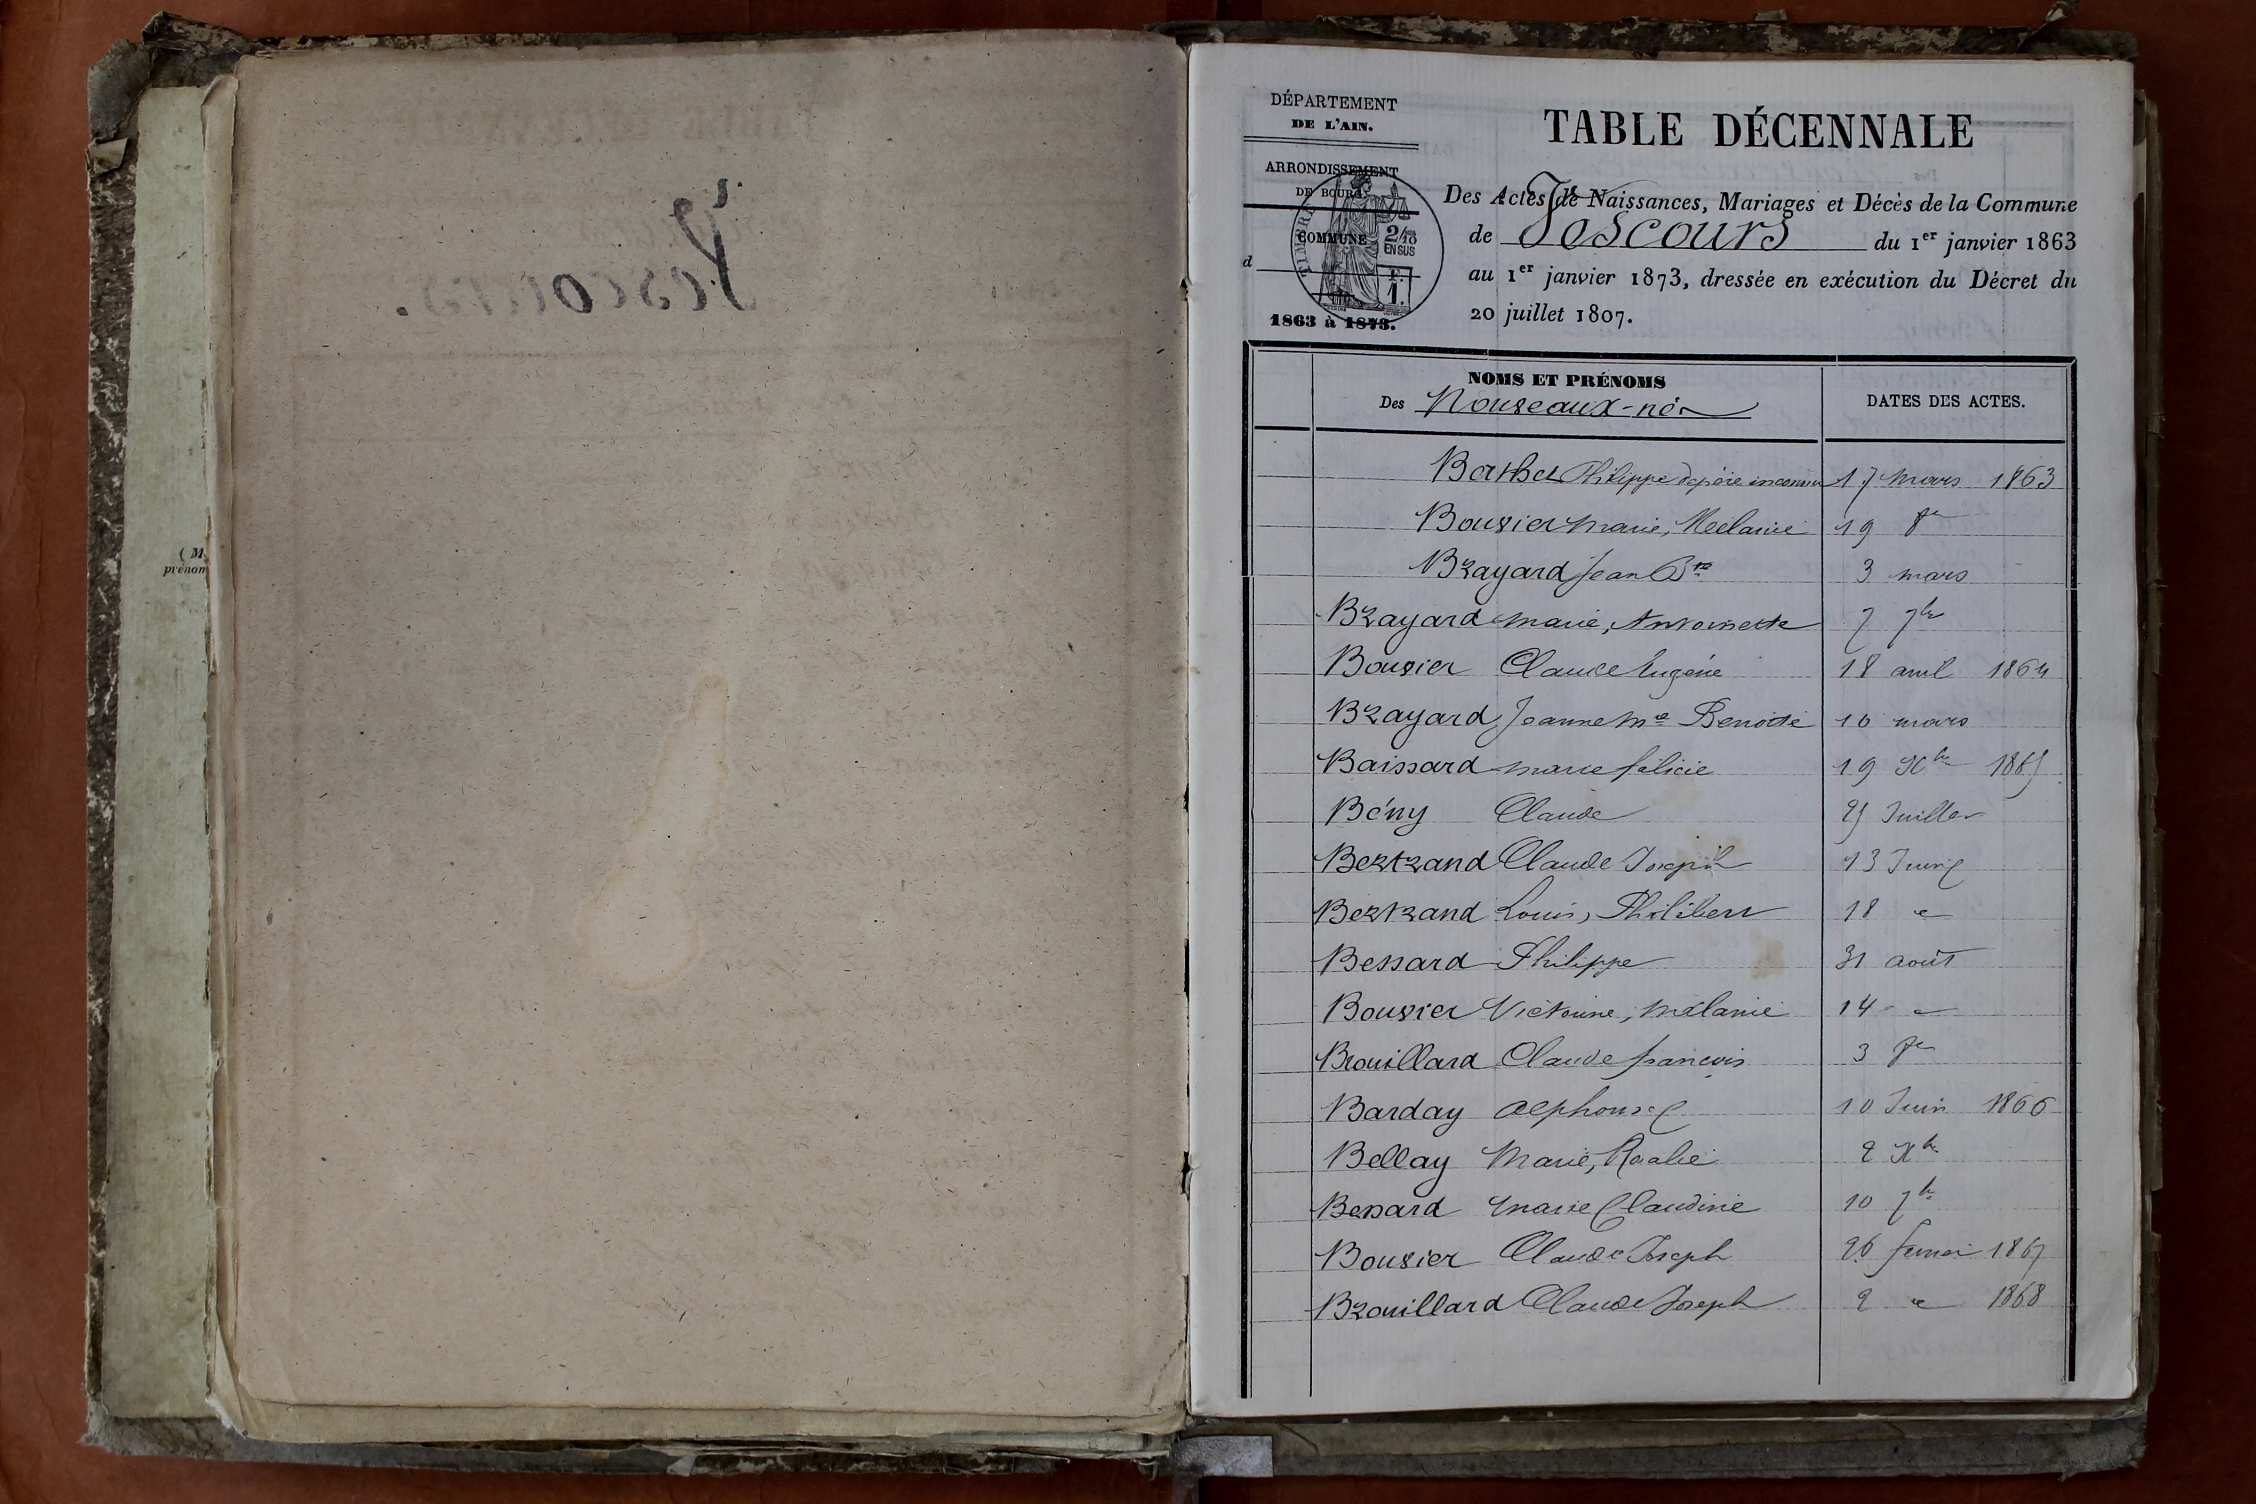 ( M.
prénom
DÉPARTEMENT
DE L'AIN.
ARRONDISSEMENT
DE BOURG
COMMUNE
d
1863 à 1873.
TIMBRE
2/10
EN SUS
1.
TABLE DÉCENNALE
Des Actes de Naissances, Mariages et Décès de la Commune
de Jescours du 1er janvier 1863
au 1er janvier 1873, dressée en exécution du Décret du
20 juillet 1807.
NOMS ET PRÉNOMS
Des Nouveaux-nés
DATES DES ACTES.
Barthet Philippe de père inconnu 17 mars 1863
Bouvier marie, Mélanie 19
Brayard Jean Bte 3 mars
Brayard marie, Antoinette 7 7bre
Bouvier Claude Eugène 18 avril 1864
Brayard Jeanne Me Benoite 10 mars
Baissard marie félicie 19 Xbre 1865
Bény Claude 25 Juillet
Bertrand Claude Joseph 13 Juin
Bertrand Louis, Philibert 18
Bessard Philippe 31 août
Bouvier Victorine, mélanie 14
Brouillard Claude françois 3
Barday alphonse 10 Juin 1866
Bellay Marie, Rosalie 2 Xbre
Bessard marie Claudine 10 7bre
Bouvier Claude Joseph 26 fevrier 1867
Brouillard Claude Joseph 2 1868